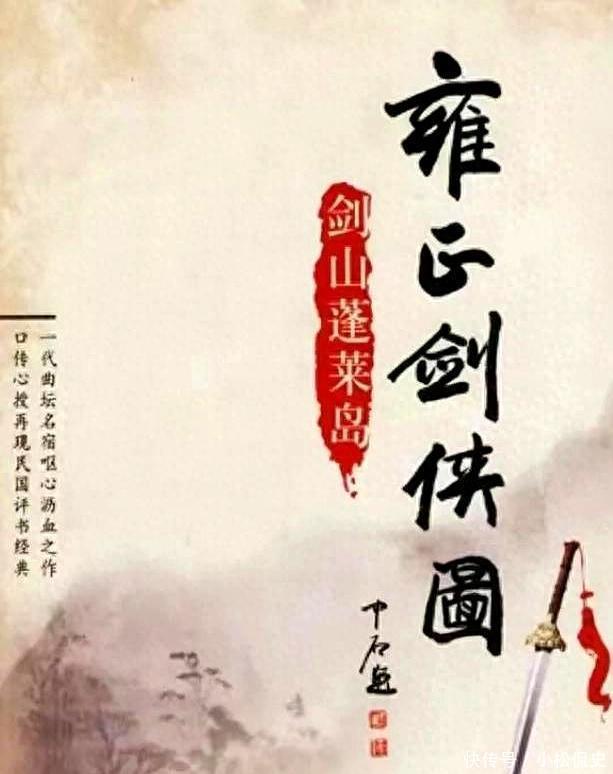 雍正剑侠圖
剑山蓬莱岛
一代曲坛名宿呕心沥血之作
口传心授再现民国评书经典
中石题
快传号／小松侃史